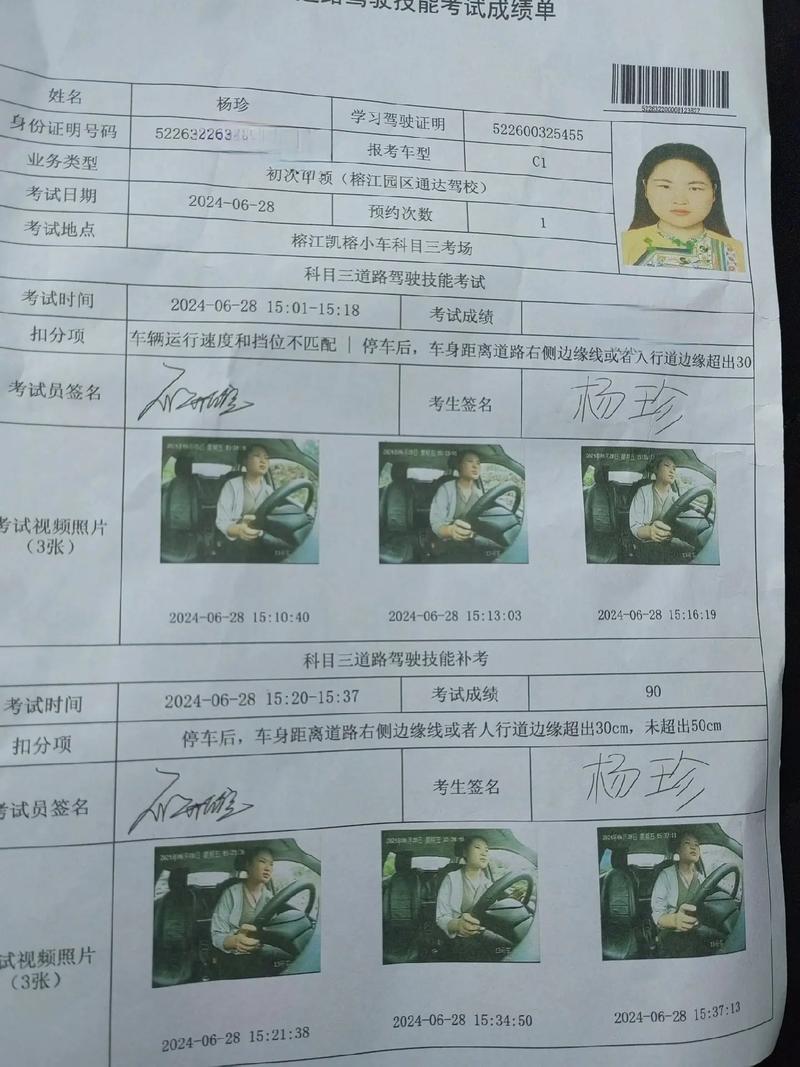 道路驾驶技能考试成绩单
姓名 杨珍 学习驾驶证明 522600325455
身份证明号码 522632263 报考车型 C1
业务类型 初次申领（榕江园区通达驾校）
考试日期 2024-06-28 预约次数 1
考试地点 榕江凯榕小车科目三考场
科目三道路驾驶技能考试
考试时间 2024-06-28 15:01-15:18 考试成绩
扣分项 车辆运行速度和挡位不匹配 | 停车后，车身距离道路右侧边缘线或者人行道边缘超出30
考试员签名 考生签名 杨珍
考试视频照片
（3张）
2024-06-28 15:10:40 2024-06-28 15:13:03 2024-06-28 15:16:19
科目三道路驾驶技能补考
考试时间 2024-06-28 15:20-15:37 考试成绩 90
扣分项 停车后，车身距离道路右侧边缘线或者人行道边缘超出30cm，未超出50cm
考试员签名 考生签名 杨珍
试视频照片
（3张）
2024-06-28 15:21:38 2024-06-28 15:34:50 2024-06-28 15:37:13